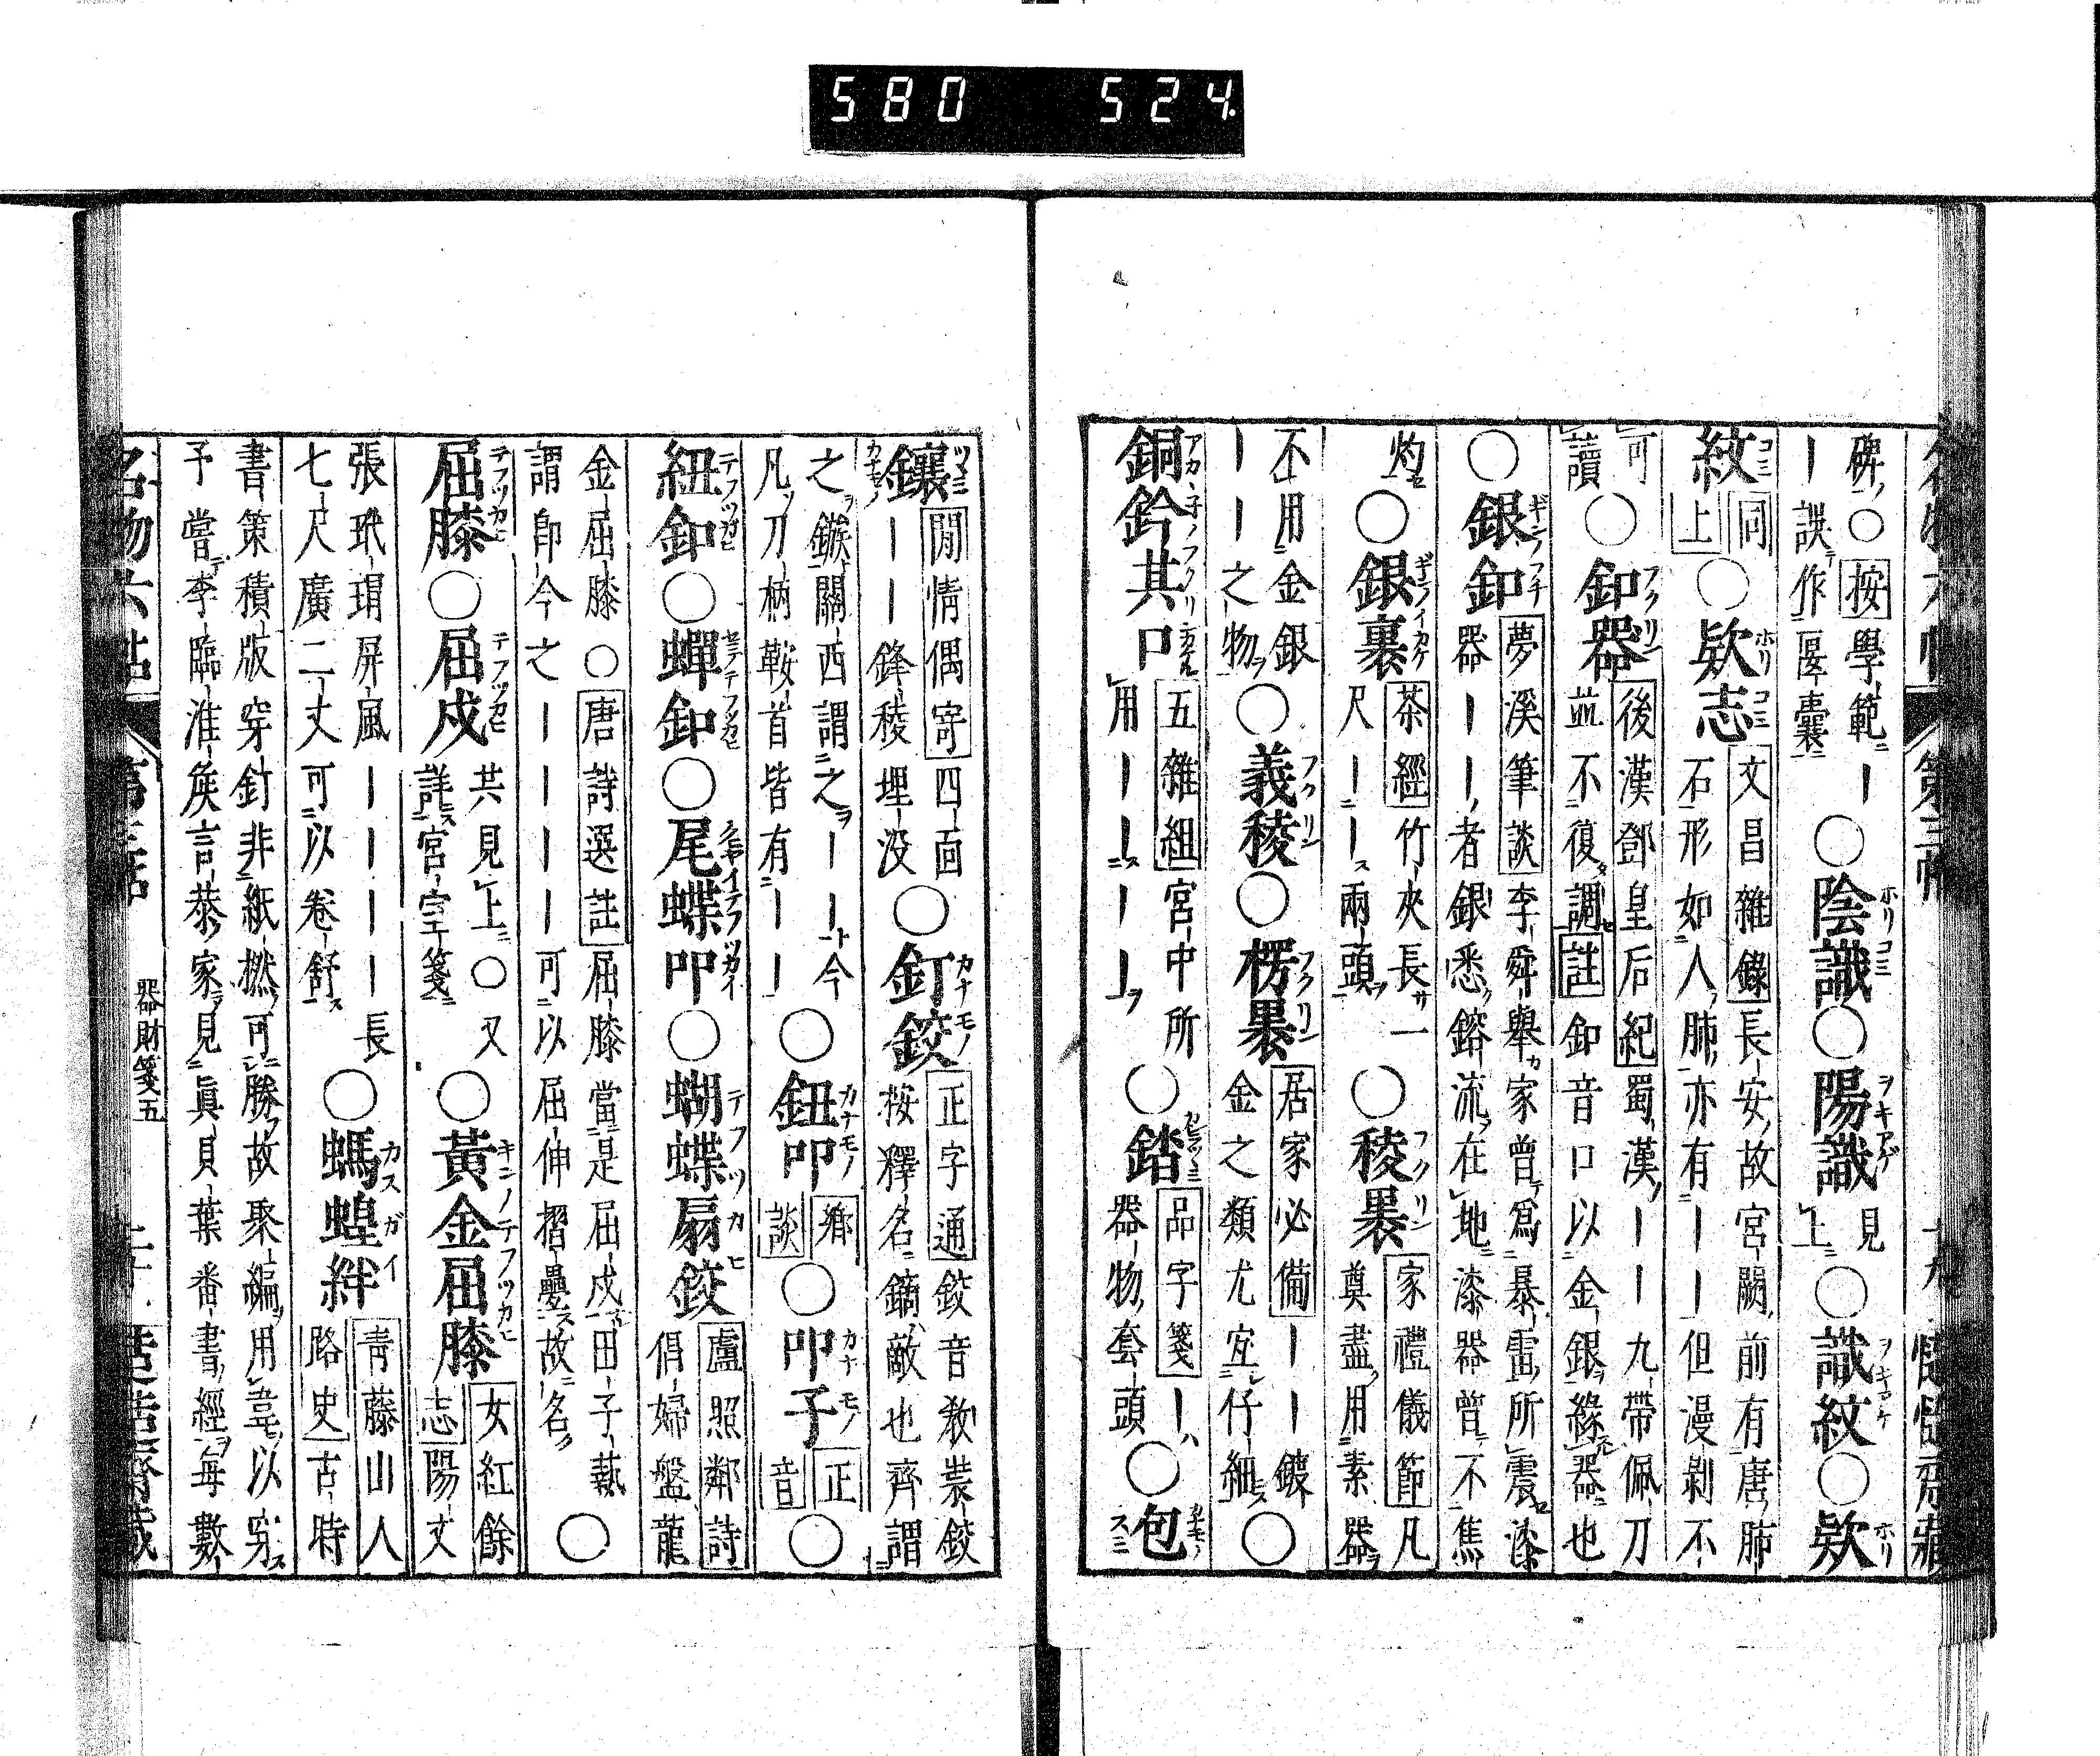 580 524
碑○按學範ニー
ー誤テ作偃囊ニ
○陰識○陽識
見
上ニ
○識紋○欵
紋
同
上
○欵志
文昌雜錄長安故宮闕前有唐肺
石形如人肺亦有ーー但漫剥不
可
讀
○釦器
後漢鄧皇后紀蜀漢ーー九帶佩刀
並不復調註釦音口以金銀緣器也
○銀釦
夢溪筆談李舜舉家曾爲暴雷所震漆
器ーー者銀悉鎔流在地漆器曾不焦
灼
○銀裏
茶經竹夾長サ一
尺ーー兩頭
○稜褁
家禮儀節凡
奠盡用素器
不用金銀
ーー之物
○義稜○楞褁
居家必備ーー鍍
金之類尤宜仔細
○
銅鈐其口
五雜組宮中所
用ーーーー
○錔
品字箋ーハ
器物套頭
○包
鑲
閒情偶寄四面
ーー鋒稜埋没
○釘鉸
正字通鉸音敎裝鉸
按釋名鏑敵也齊謂
之鏃關西謂之ーー今
凡刀柄鞍首皆有ーー
○鈕卬
鄕
談
○卬子
正
音
○
紐釦○蟬釦○尾蝶卬○蝴蝶扇鉸
盧照鄰詩
倡婦盤龍
金屈膝○唐詩選註屈膝當是屈戍田子藝
謂即今之ーーーー可以屈伸摺疊故名
○
屈膝○屈戍
共見上○又
詳宮室箋
○黃金屈膝
女紅餘
志陽文
張玳瑁屏風ーーーー長
七尺廣二丈可以卷舒
○螞蝗絆
靑藤山人
路史古時
書策積版穿釘非紙撚可勝故聚編用韋以穷
予嘗李臨淮矦言恭家見眞貝葉番書經每數
名物六帖
第三帖
器財箋五